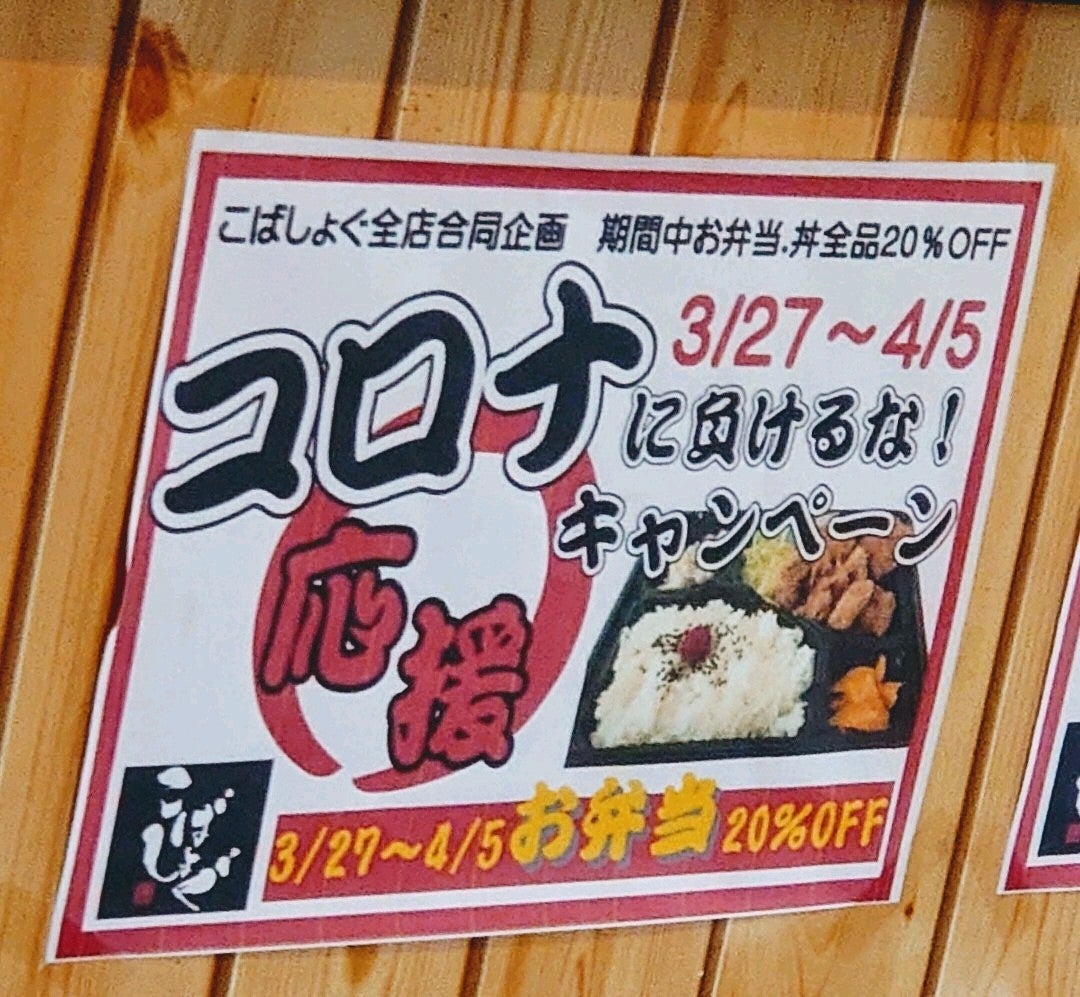 こばしょぐ全店合同企画 期間中お弁当.丼全品20%OFF
3/27～4/5
コロナ
に負けるな!
キャンペーン
応援
こばしょぐ
3/27～4/5お弁当20%OFF